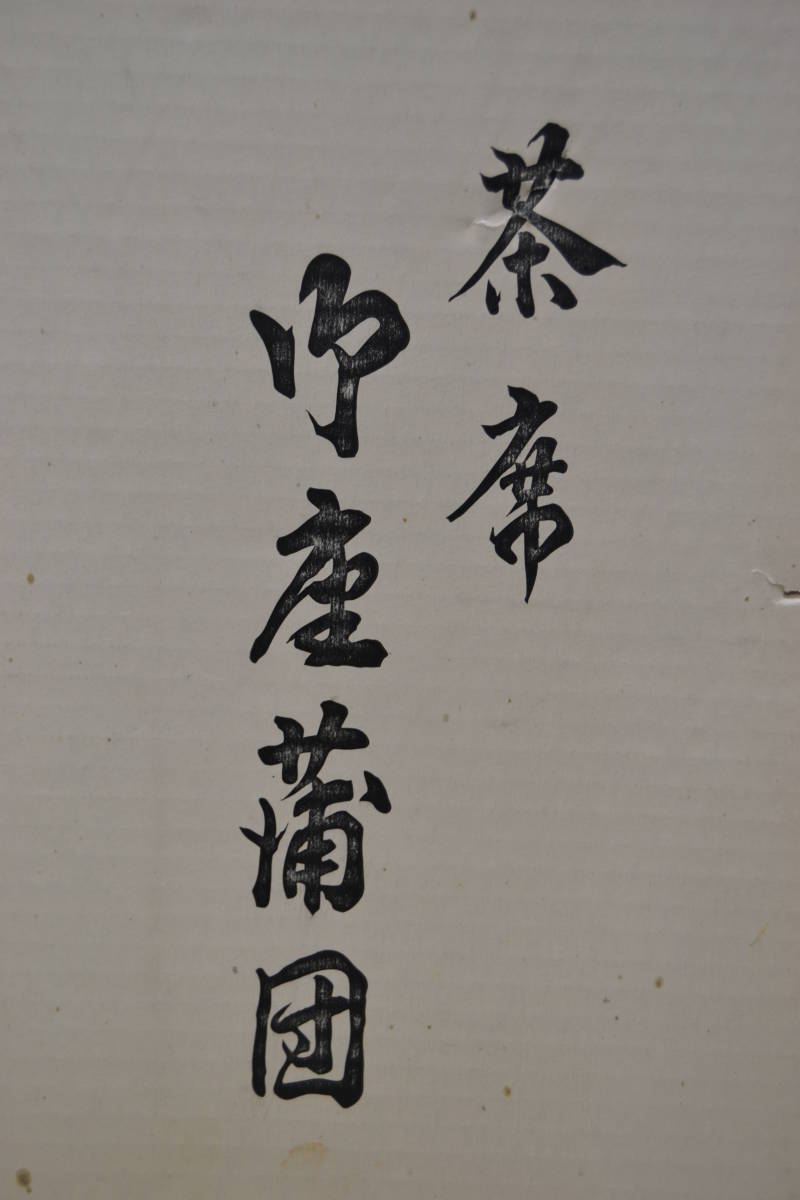 茶席
御座蒲団